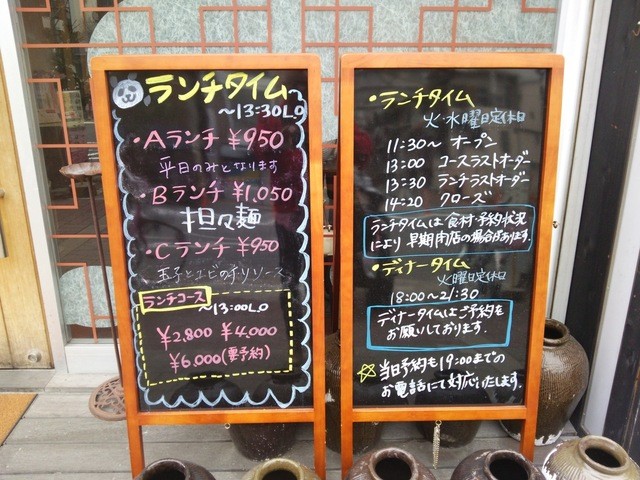 ランチタイム
～13:30L.O
・Aランチ ¥950
平日のみとなります
・Bランチ ¥1,050
担々麺
・Cランチ ¥950
玉子とエビのチリソース
ランチコース
～13:00L.O
¥2,800 ¥4,000
¥6,000(要予約)
・ランチタイム
火・水曜日定休日
11:30～ オープン
13:00 コースラストオーダー
13:30 ランチラストオーダー
14:20 クローズ
ランチタイムは食材・予約状況
により早期閉店の場合があります.
・ディナータイム
火曜日定休日
18:00～21:30
ディナータイムはご予約を
お願いしております.
☆当日予約も19:00までの
お電話にて対応いたします.